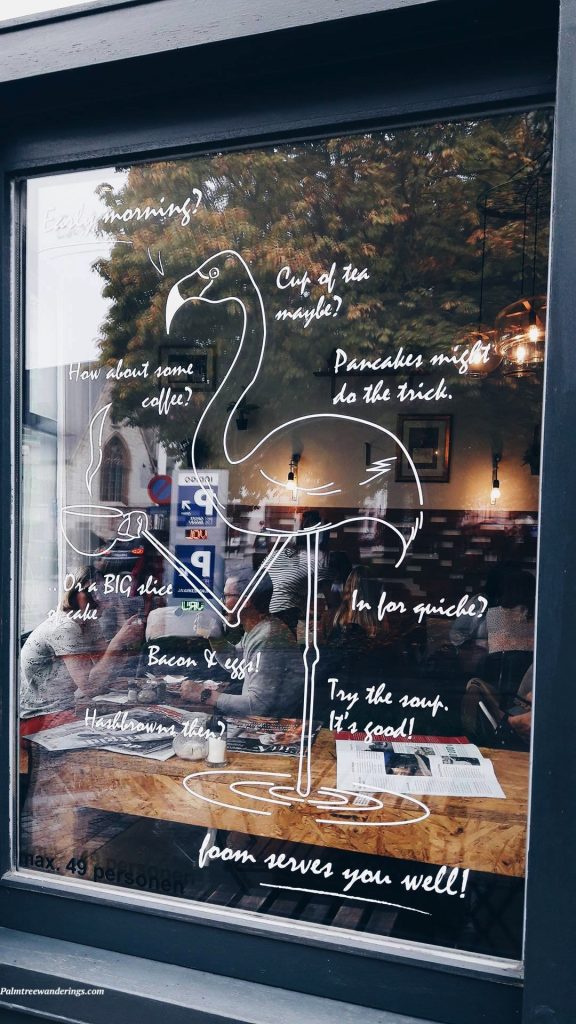 Early morning?
Cup of tea
maybe?
How about some
coffee?
Pancakes might
do the trick.
P
P
...Or a BIG slice
of cake
In for quiche?
Bacon & eggs!
Try the soup.
It's good!
Hashbrowns then?
foom serves you well!
max. 49 personen
Palmtreewanderings.com